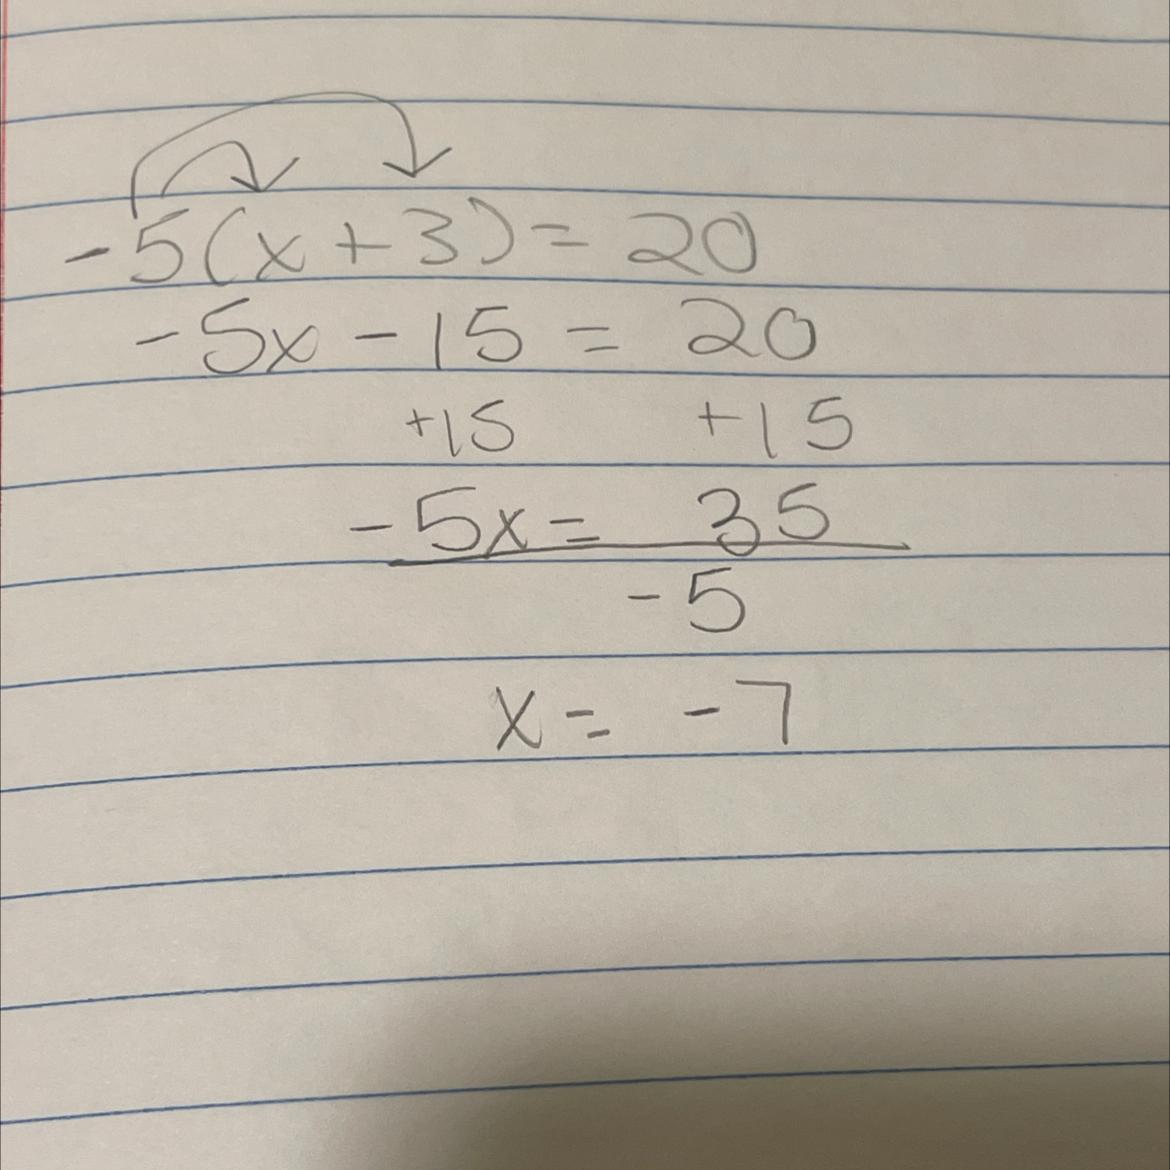 -5(x+3)=20
-5x-15=20
+15 +15
-5x=35
-5
x=-7